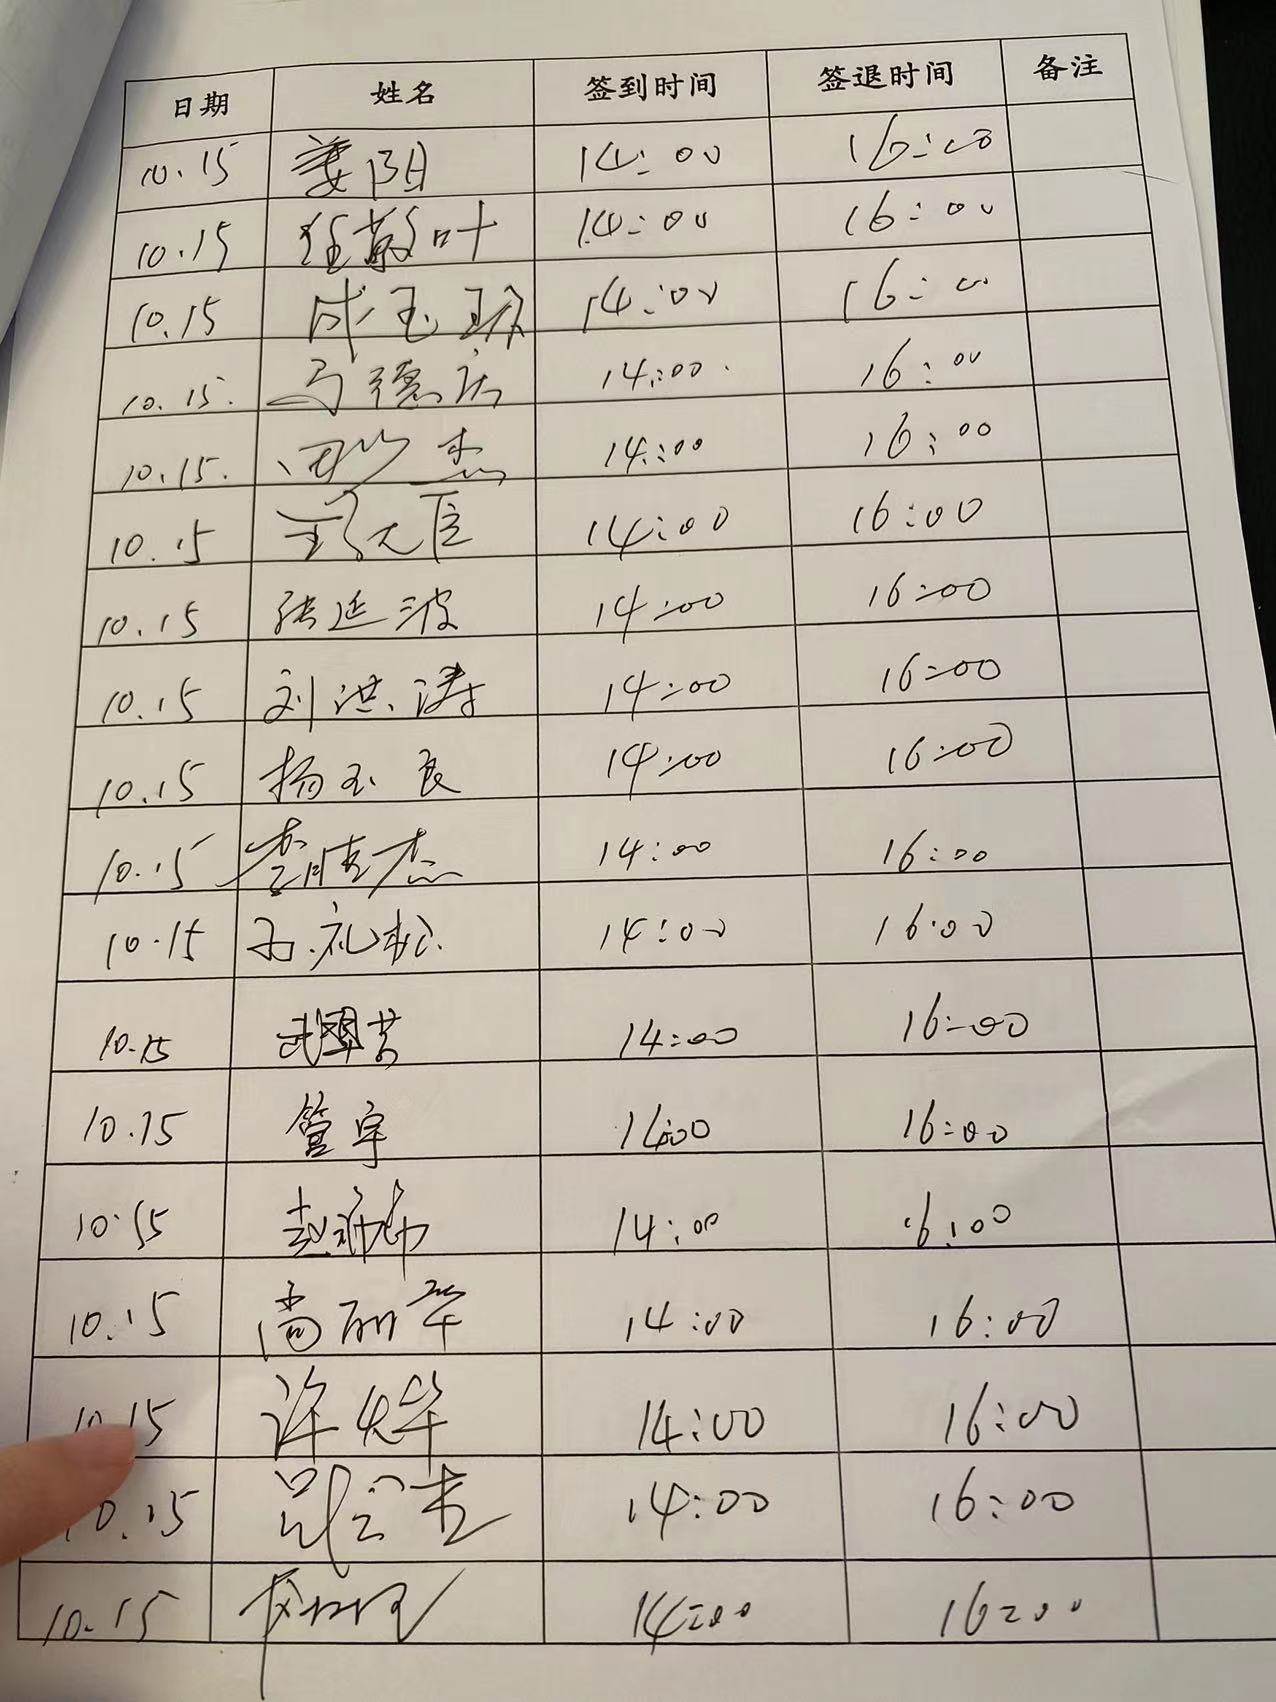 日期 姓名 签到时间 签退时间 备注
10.15 姜阳 14:00 16:00
10.15 任敬叶 14:00 16:00
10.15 成玉 14:00 16:00
10.15. 马德庆 14:00. 16:00
10.15. 杰 14:00 16:00
10.15 14:00 16:00
10.15 张延波 14:00 16:00
10.15 刘洪涛 14:00 16:00
10.15 杨玉良 14:00 16:00
10.15 李胜杰 14:00 16:00
10.15 孙礼松 14:00 16:00
10.15 武 14:00 16:00
10.15 管宇 14:00 16:00
10.15 赵 14:00 16:00
10.15 尚丽华 14:00 16:00
10.15 许烨 14:00 16:00
10.15 14:00 16:00
10.15 14:00 16:00